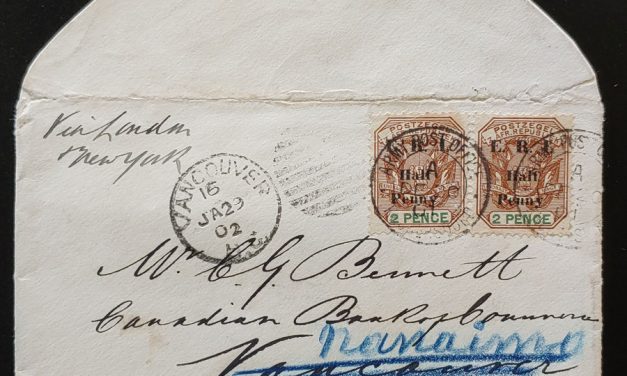 Via London
& New York
VANCOUVER
16
JA 29
02
POSTZEGEL
E.R.I.
Half
Penny
2 PENCE
POSTZEGEL
E.R.I.
Half
Penny
2 PENCE
ARMY POST OFFICE
Mr. C. G. Bennett
Canadian Bank of Commerce
nanaimo
Vancouver